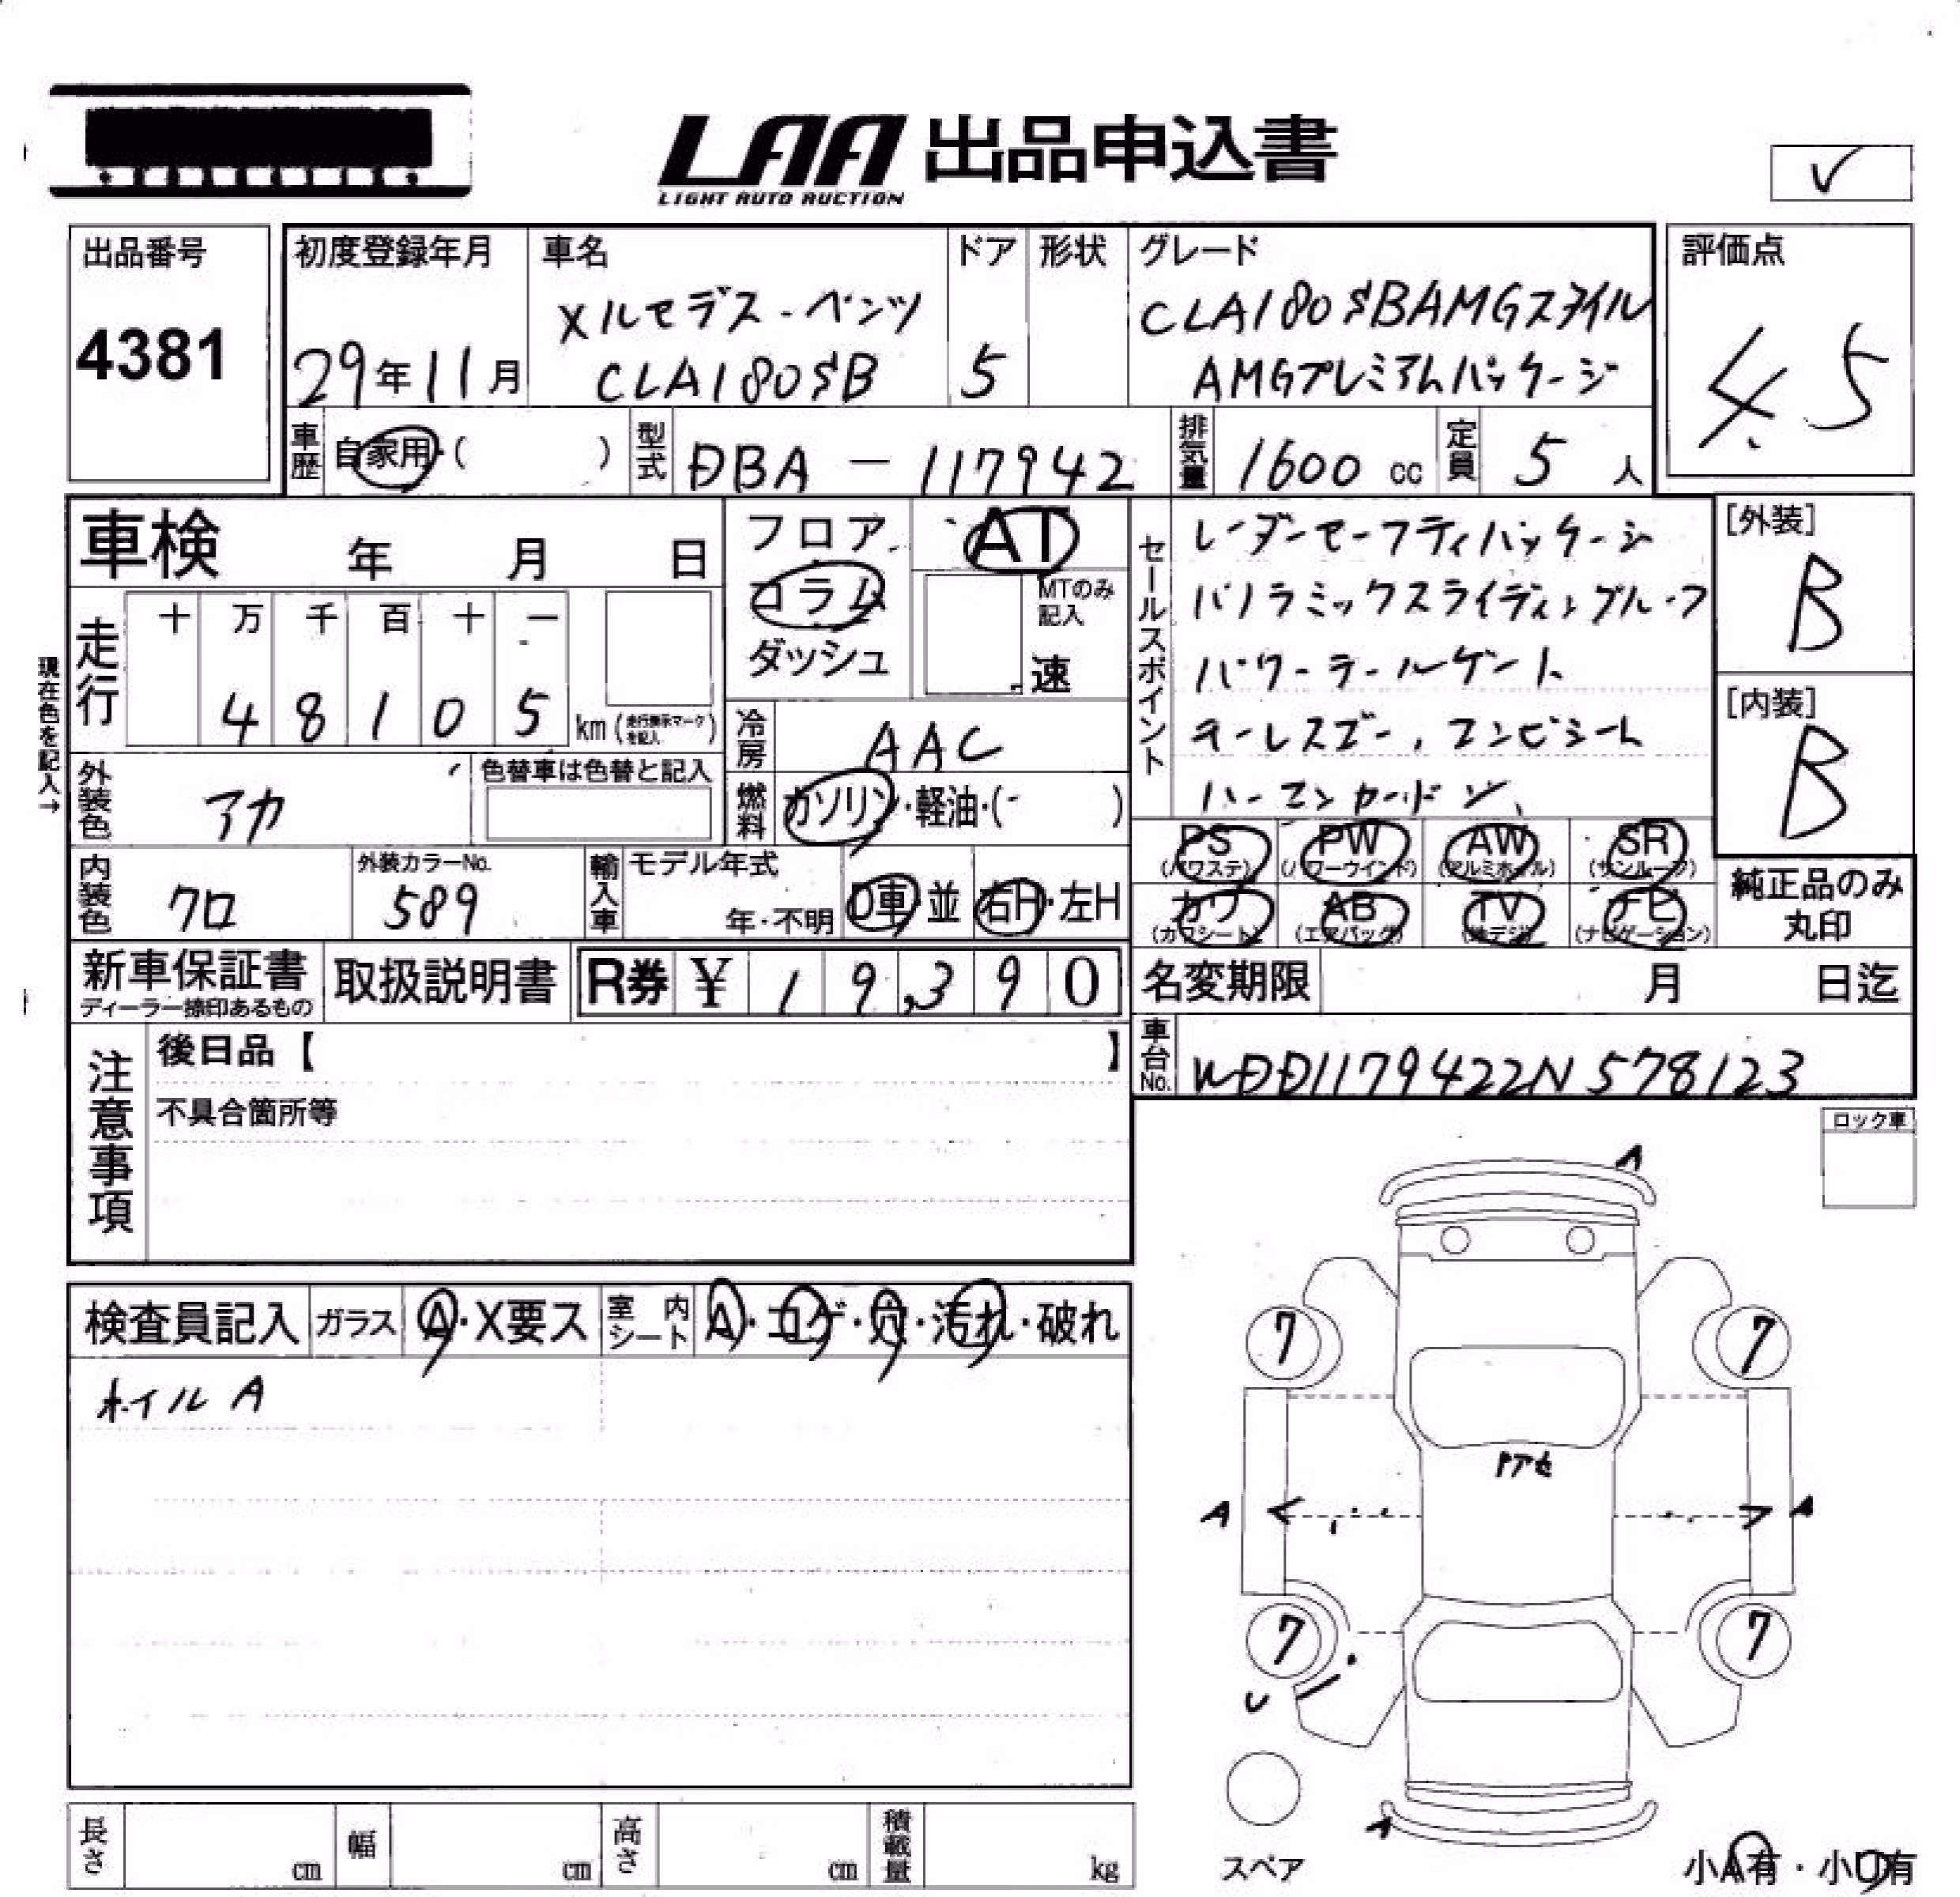 LAA 出品申込書
LIGHT AUTO AUCTION
✓
出品番号
4381
初度登録年月
29年11月
車名
メルセデス-ベンツ
CLA180SB
ドア
5
形状
グレード
CLA180SBAMGスタイル
AMGプレミアムパッケージ
評価点
4.5
車歴
自家用・( )
型式
DBA-117942
排気量
1600 cc
定員
5 人
車検 年 月 日
フロア
コラム
ダッシュ
AT
MTのみ
記入
速
セールスポイント
レーダーセーフティパッケージ
パノラミックスライディングルーフ
パワーテールゲート
キーレスゴー、コンビシート
ハーマンカードン、
[外装]
B
[内装]
B
現在色を記入→
走行
十 万 千 百 十 一
4 8 1 0 5
km (走行表示マークを記入)
冷房
AAC
燃料
ガソリン・軽油・( )
外装色
アカ
色替車は色替と記入
内装色
クロ
外装カラーNo.
589
輸入車
モデル年式
年・不明
D車・並
右H・左H
PS
(パワステ)
PW
(パワーウインド)
AW
(アルミホイル)
SR
(サンルーフ)
カワ
(カワシート)
AB
(エアバッグ)
TV
(地デジ)
ナビ
(ナビゲーション)
純正品のみ
丸印
新車保証書
ディーラー捺印あるもの
取扱説明書
R券 ¥ 19,390
名変期限 月 日迄
車台No.
WDD1179422N578123
注意事項
後日品【 】
不具合箇所等
ロック車
検査員記入
ガラス
A・X要ス
室内シート
A・コゲ・穴・汚れ・破れ
ホイルA
A
7
7
アセ
A
A
7
7
U
A
スペア
小A有・小U有
長さ cm
幅 cm
高さ cm
積載量 kg